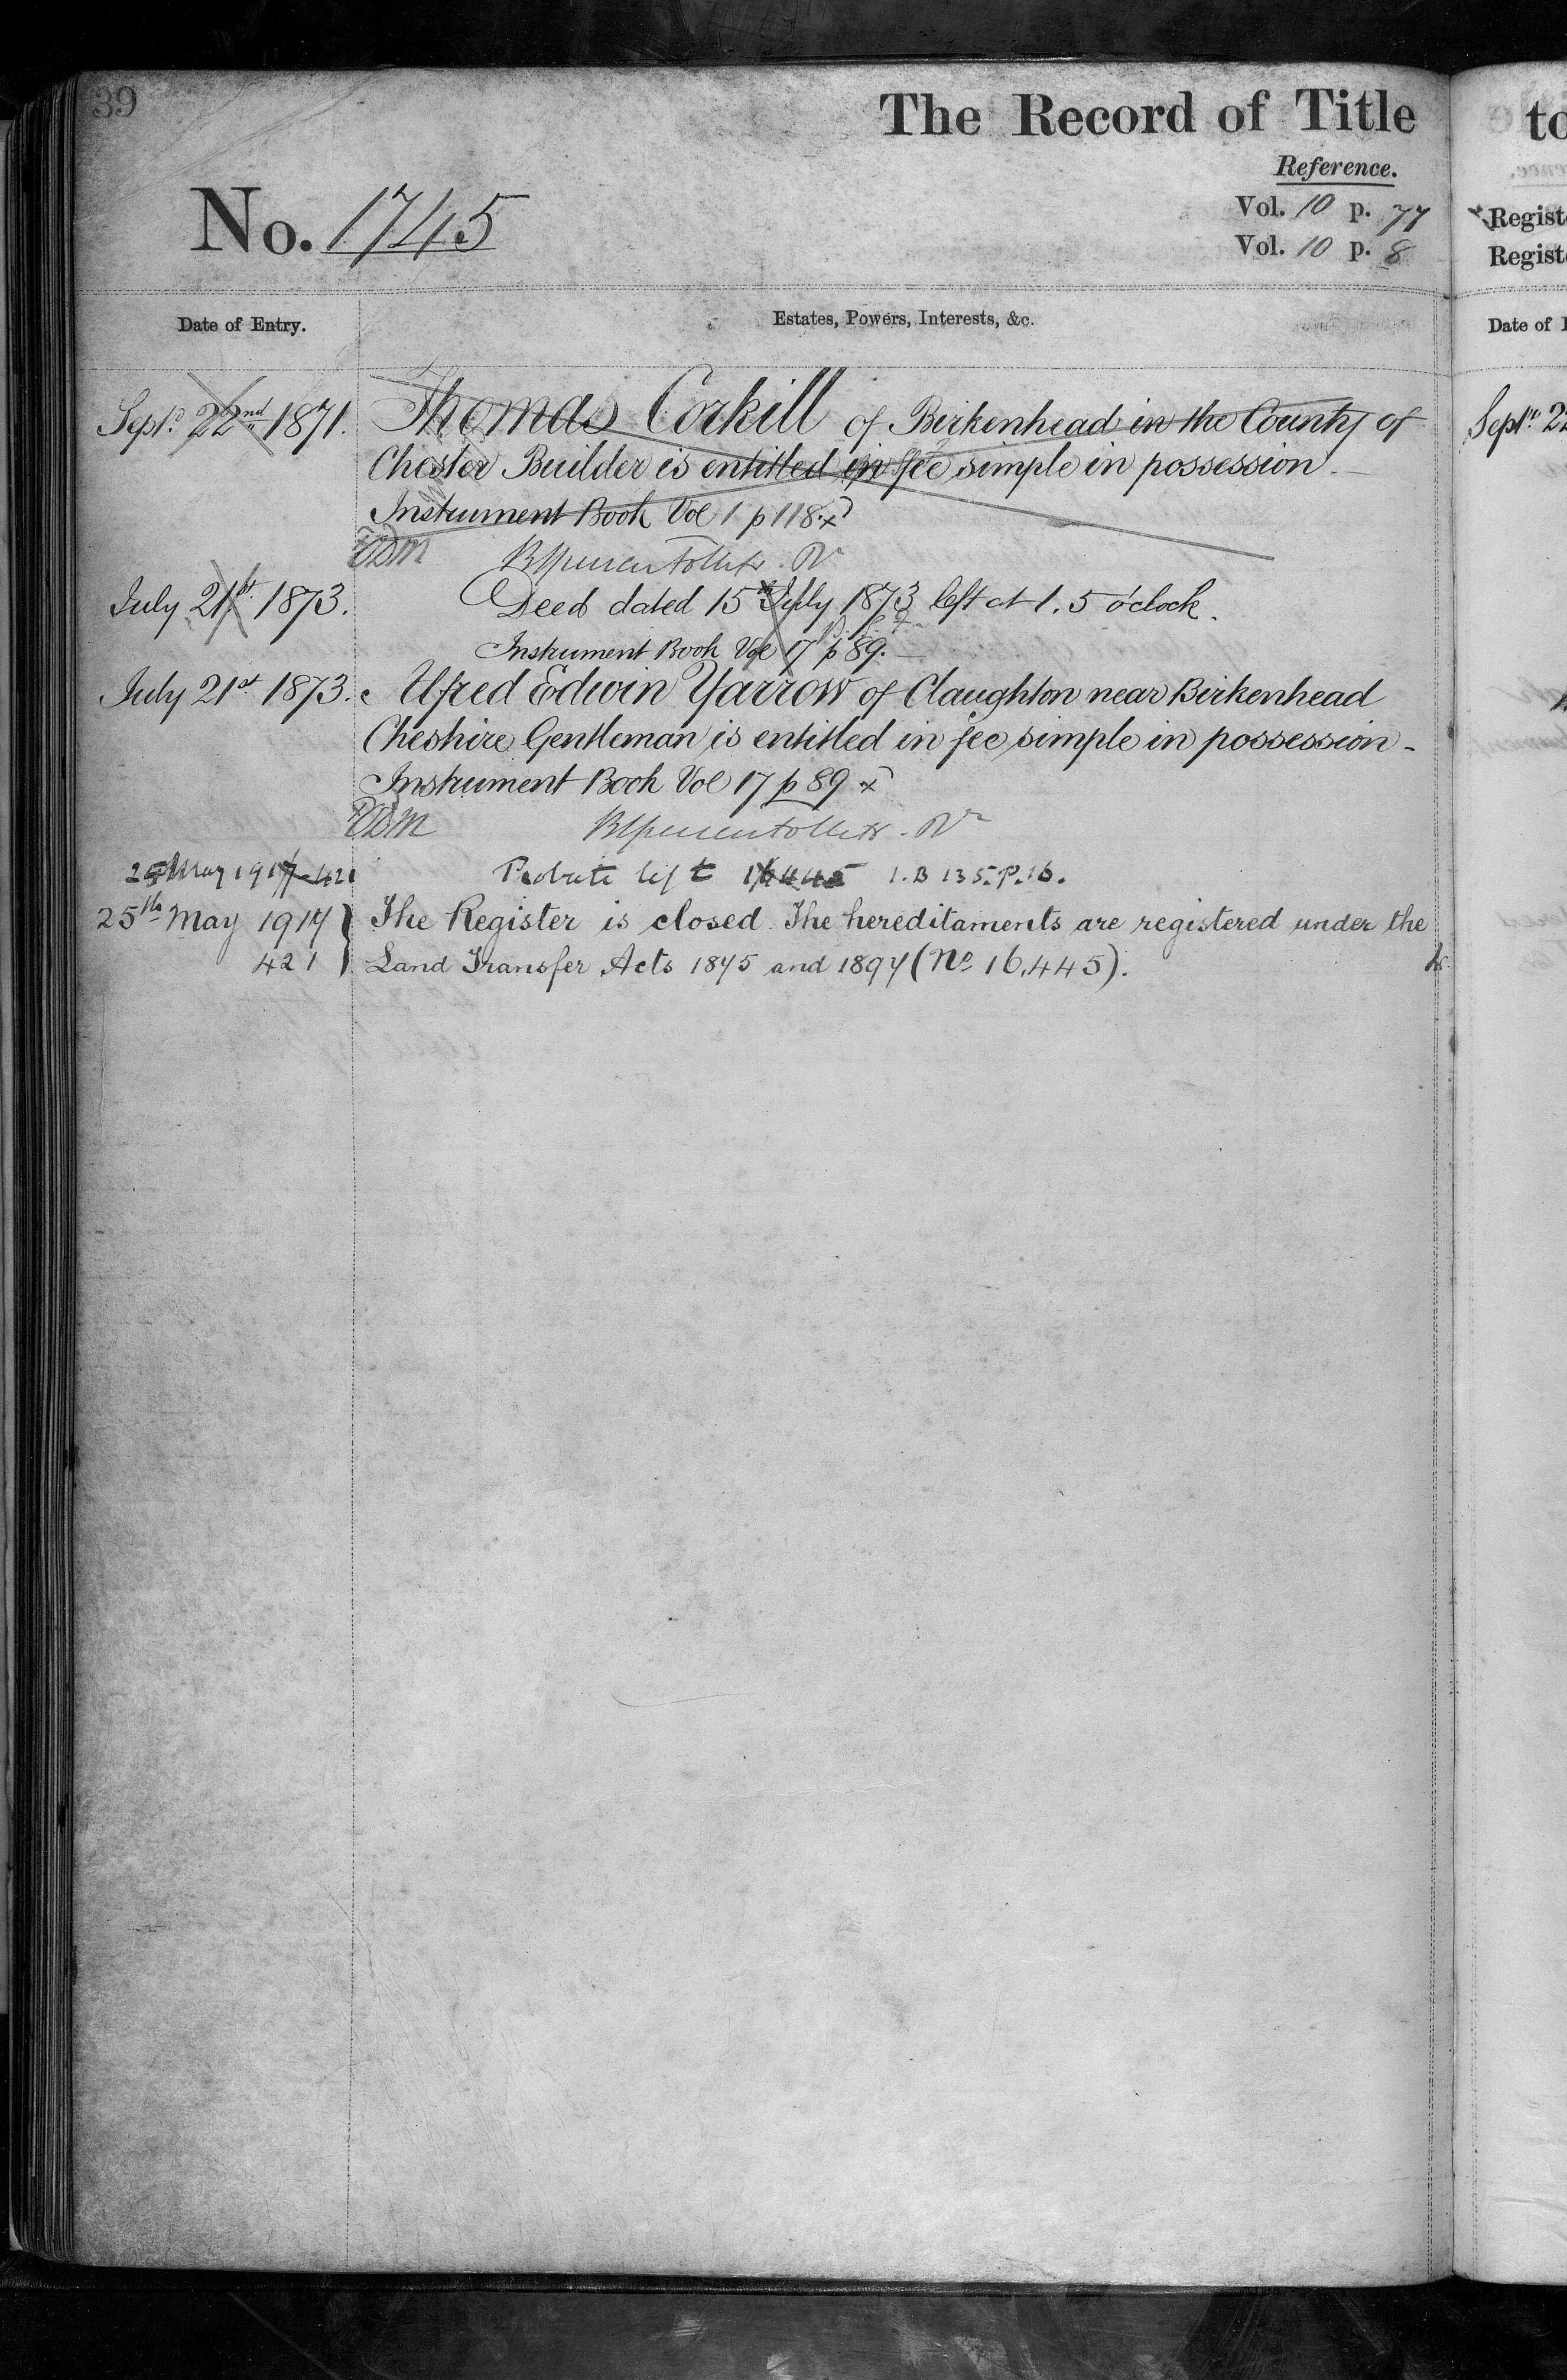 39
The Record of Title
Reference.
No. 1745
Vol. 10 p. 77
Vol. 10 p. 8
Date of Entry.
Estates, Powers, Interests, &c.
Septr. 22nd 1871.
Thomas Corkill of Birkenhead in the County of
Chester Builder is entitled in fee simple in possession
Instrument Book Vol 1 p 118.
July 21st 1873.
Deed dated 15th July 1873 left at 1.5 o'clock.
Instrument Book Vol 17 p 89.
July 21st 1873.
Alfred Edwin Yarrow of Claughton near Birkenhead
Cheshire Gentleman is entitled in fee simple in possession -
Instrument Book Vol 17 p 89
25 May 1917 421
Probate left 16445 I.B 135. P. 16.
25th May 1917
421
The Register is closed. The hereditaments are registered under the
Land Transfer Acts 1875 and 1897 (No 16,445).
to
Regist
Regist
Date of
Septr. 22